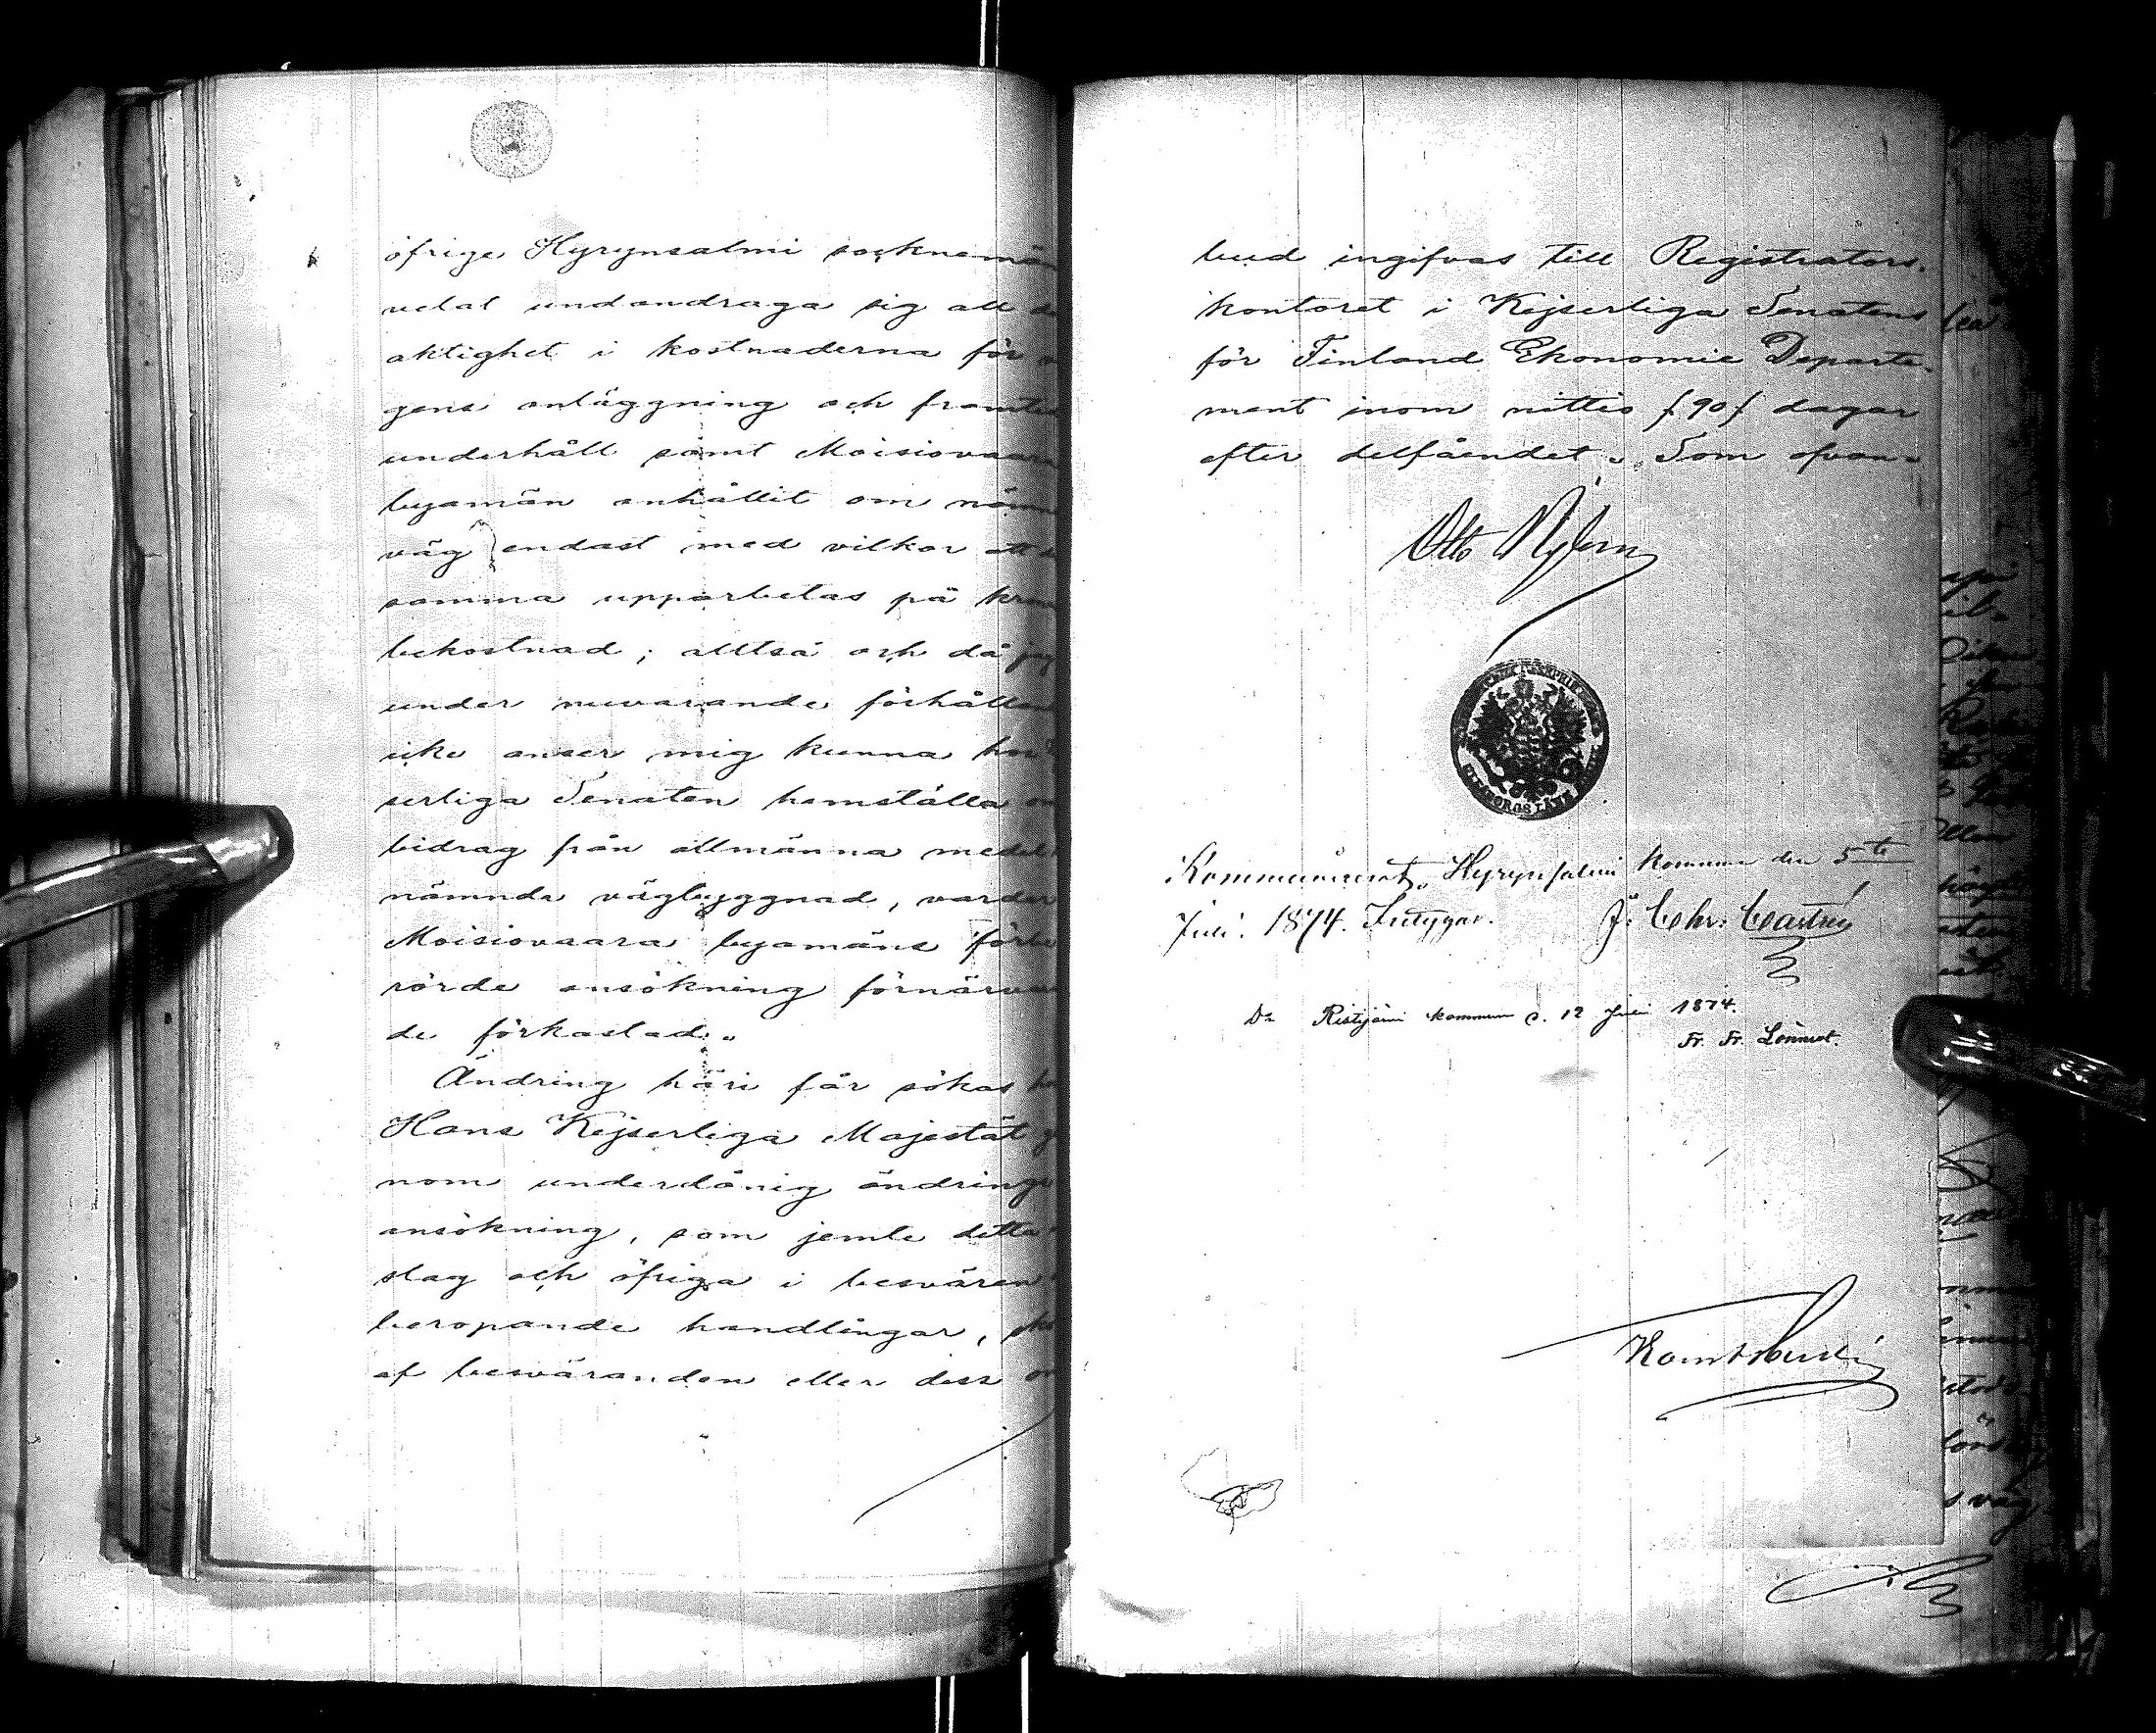 öfrige Hyrynsalmi socknemän
velat undandraga sig all de
aktighet i kostnaderna för
gens anläggning och framti
underhåll samt Moisiovaara
byamän anhållit om nämn
väg endast med vilkor att
samma upparbetas på kron
bekostnad; alltså och då jag
under nuvarande förhållan
icke anser mig kunna hos
serliga Senaten hemställa om
bidrag från allmänna medel
nämnda vägbyggnad, varder
Moisiovaara byamäns förbe
rörde ansökning förnärvaran
de förkastad.
Ändring häri får sökas ho
Hans Kejserliga Majestät ge
nom underdånig ändrings
ansökning, som jemte detta
slag och öfriga i besvären
beropande handlingar, ska
af besväranden eller dess om
bud ingifvas till Registrators-
kontoret i Kejserliga Senatens
för Finland Ekonomie Departe-
ment inom nittio /90/ dagar
efter delfåendet. Som ofvan.
Otto Nylern
BORGS LÄN
Kommunicerat, Hyrynsalmi kommun den 5te
Juli 1874. Intygar. J. Chr: Castrén
Do Ristijärvi kommun d. 12 Juli 1874.
Fr. Fr. Lönnrot.
väg